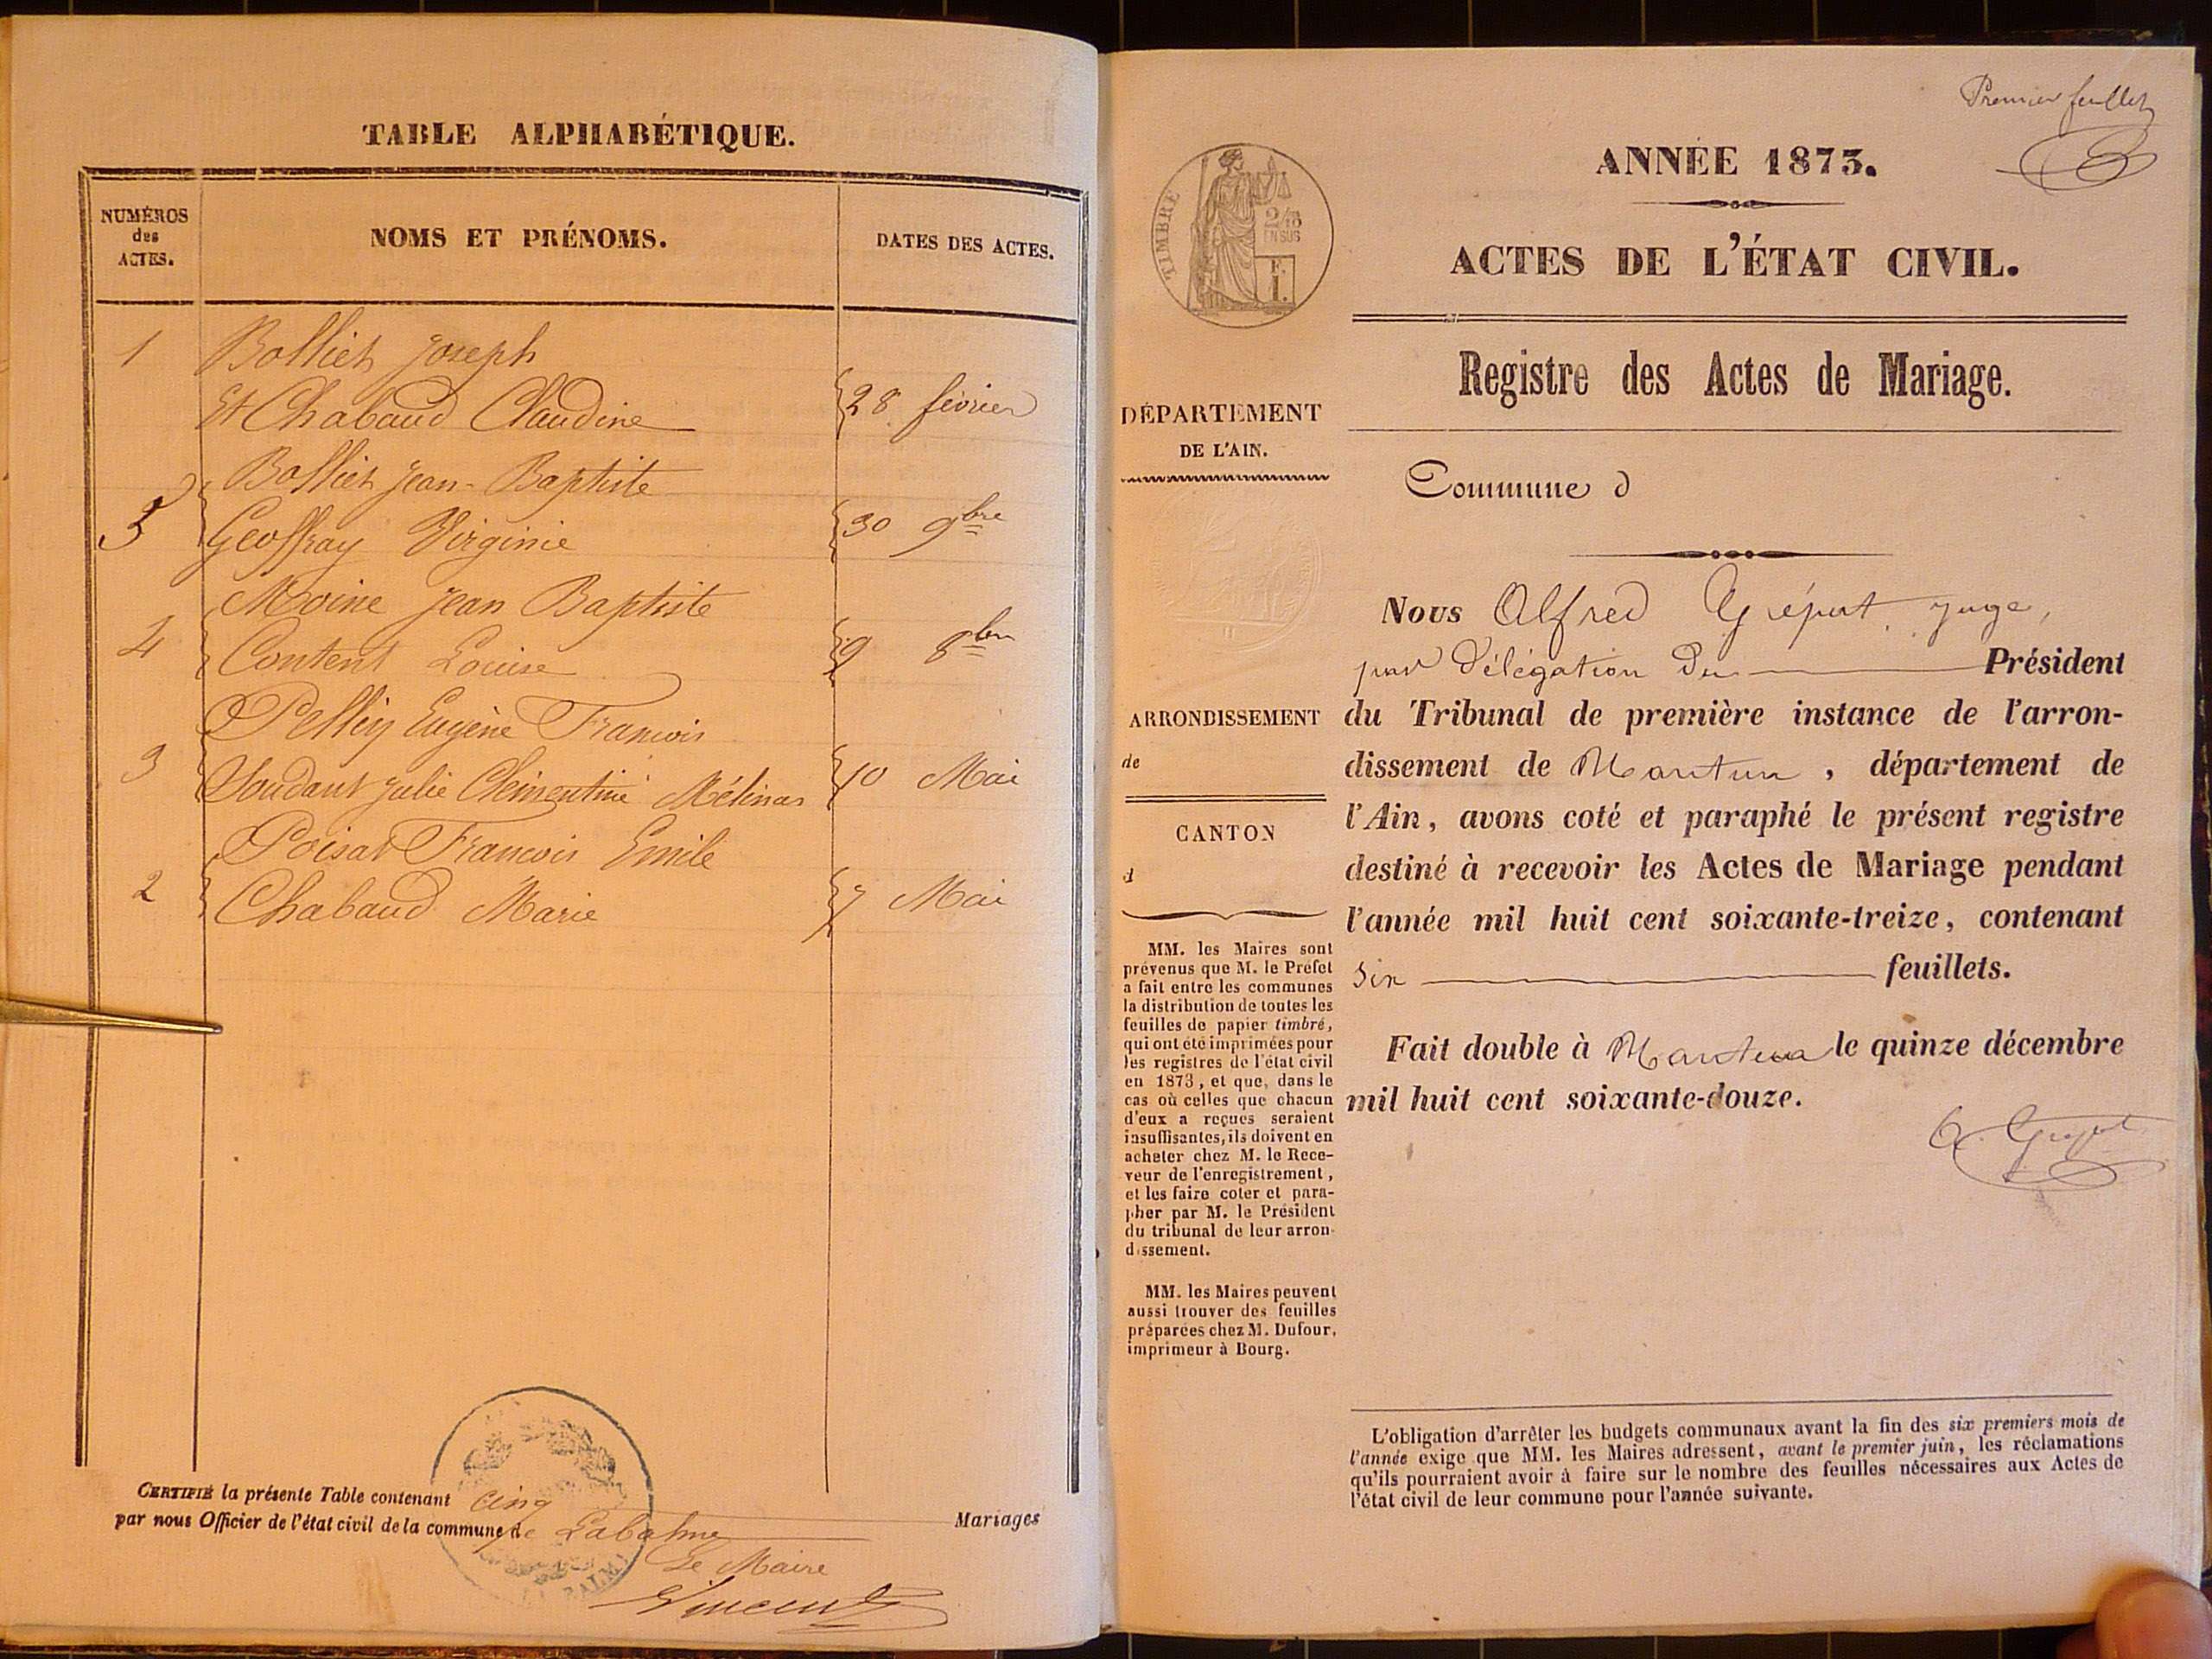 TABLE ALPHABÉTIQUE.
NUMÉROS des ACTES.
NOMS ET PRÉNOMS.
DATES DES ACTES.
1 Bolliet Joseph
Et Chabaud Claudine 28 février
Bolliet Jean-Baptiste
5 Geoffray Virginie 30 9bre
Moine Jean Baptiste
4 Content Louise 9 8bre
Pelley Eugène Francois
3 Julie Clémentine Mélina 10 Mai
Poisat Francois Emile
2 Chabaud Marie 7 Mai
CERTIFIÉ la présente Table contenant cinq Mariages
par nous Officier de l'état civil de la commune de Labalme
Le Maire
Vincent
Premier feuillet
ANNÉE 1873.
ACTES DE L'ÉTAT CIVIL.
Registre des Actes de Mariage.
TIMBRE
2/10
EN SUS
DÉPARTEMENT
DE L'AIN.
Commune d
ARRONDISSEMENT
de
CANTON
d
MM. les Maires sont
prévenus que M. le Préfet
a fait entre les communes
la distribution de toutes les
feuilles de papier timbré,
qui ont été imprimées pour
les registres de l'état civil
en 1873, et que, dans le
cas où celles que chacun
d'eux a reçues seraient
insuffisantes, ils doivent en
acheter chez M. le Rece-
veur de l'enregistrement,
et les faire coter et para-
pher par M. le Président
du tribunal de leur arron-
dissement.
MM. les Maires peuvent
aussi trouver des feuilles
préparées chez M. Dufour,
imprimeur à Bourg.
Nous Alfred juge,
par délégation du Président
du Tribunal de première instance de l'arron-
dissement de Nantua, département de
l'Ain, avons coté et paraphé le présent registre
destiné à recevoir les Actes de Mariage pendant
l'année mil huit cent soixante-treize, contenant
six feuillets.
Fait double à Nantua le quinze décembre
mil huit cent soixante-douze.
L'obligation d'arrêter les budgets communaux avant la fin des six premiers mois de
l'année exige que MM. les Maires adressent, avant le premier juin, les réclamations
qu'ils pourraient avoir à faire sur le nombre des feuilles nécessaires aux Actes de
l'état civil de leur commune pour l'année suivante.